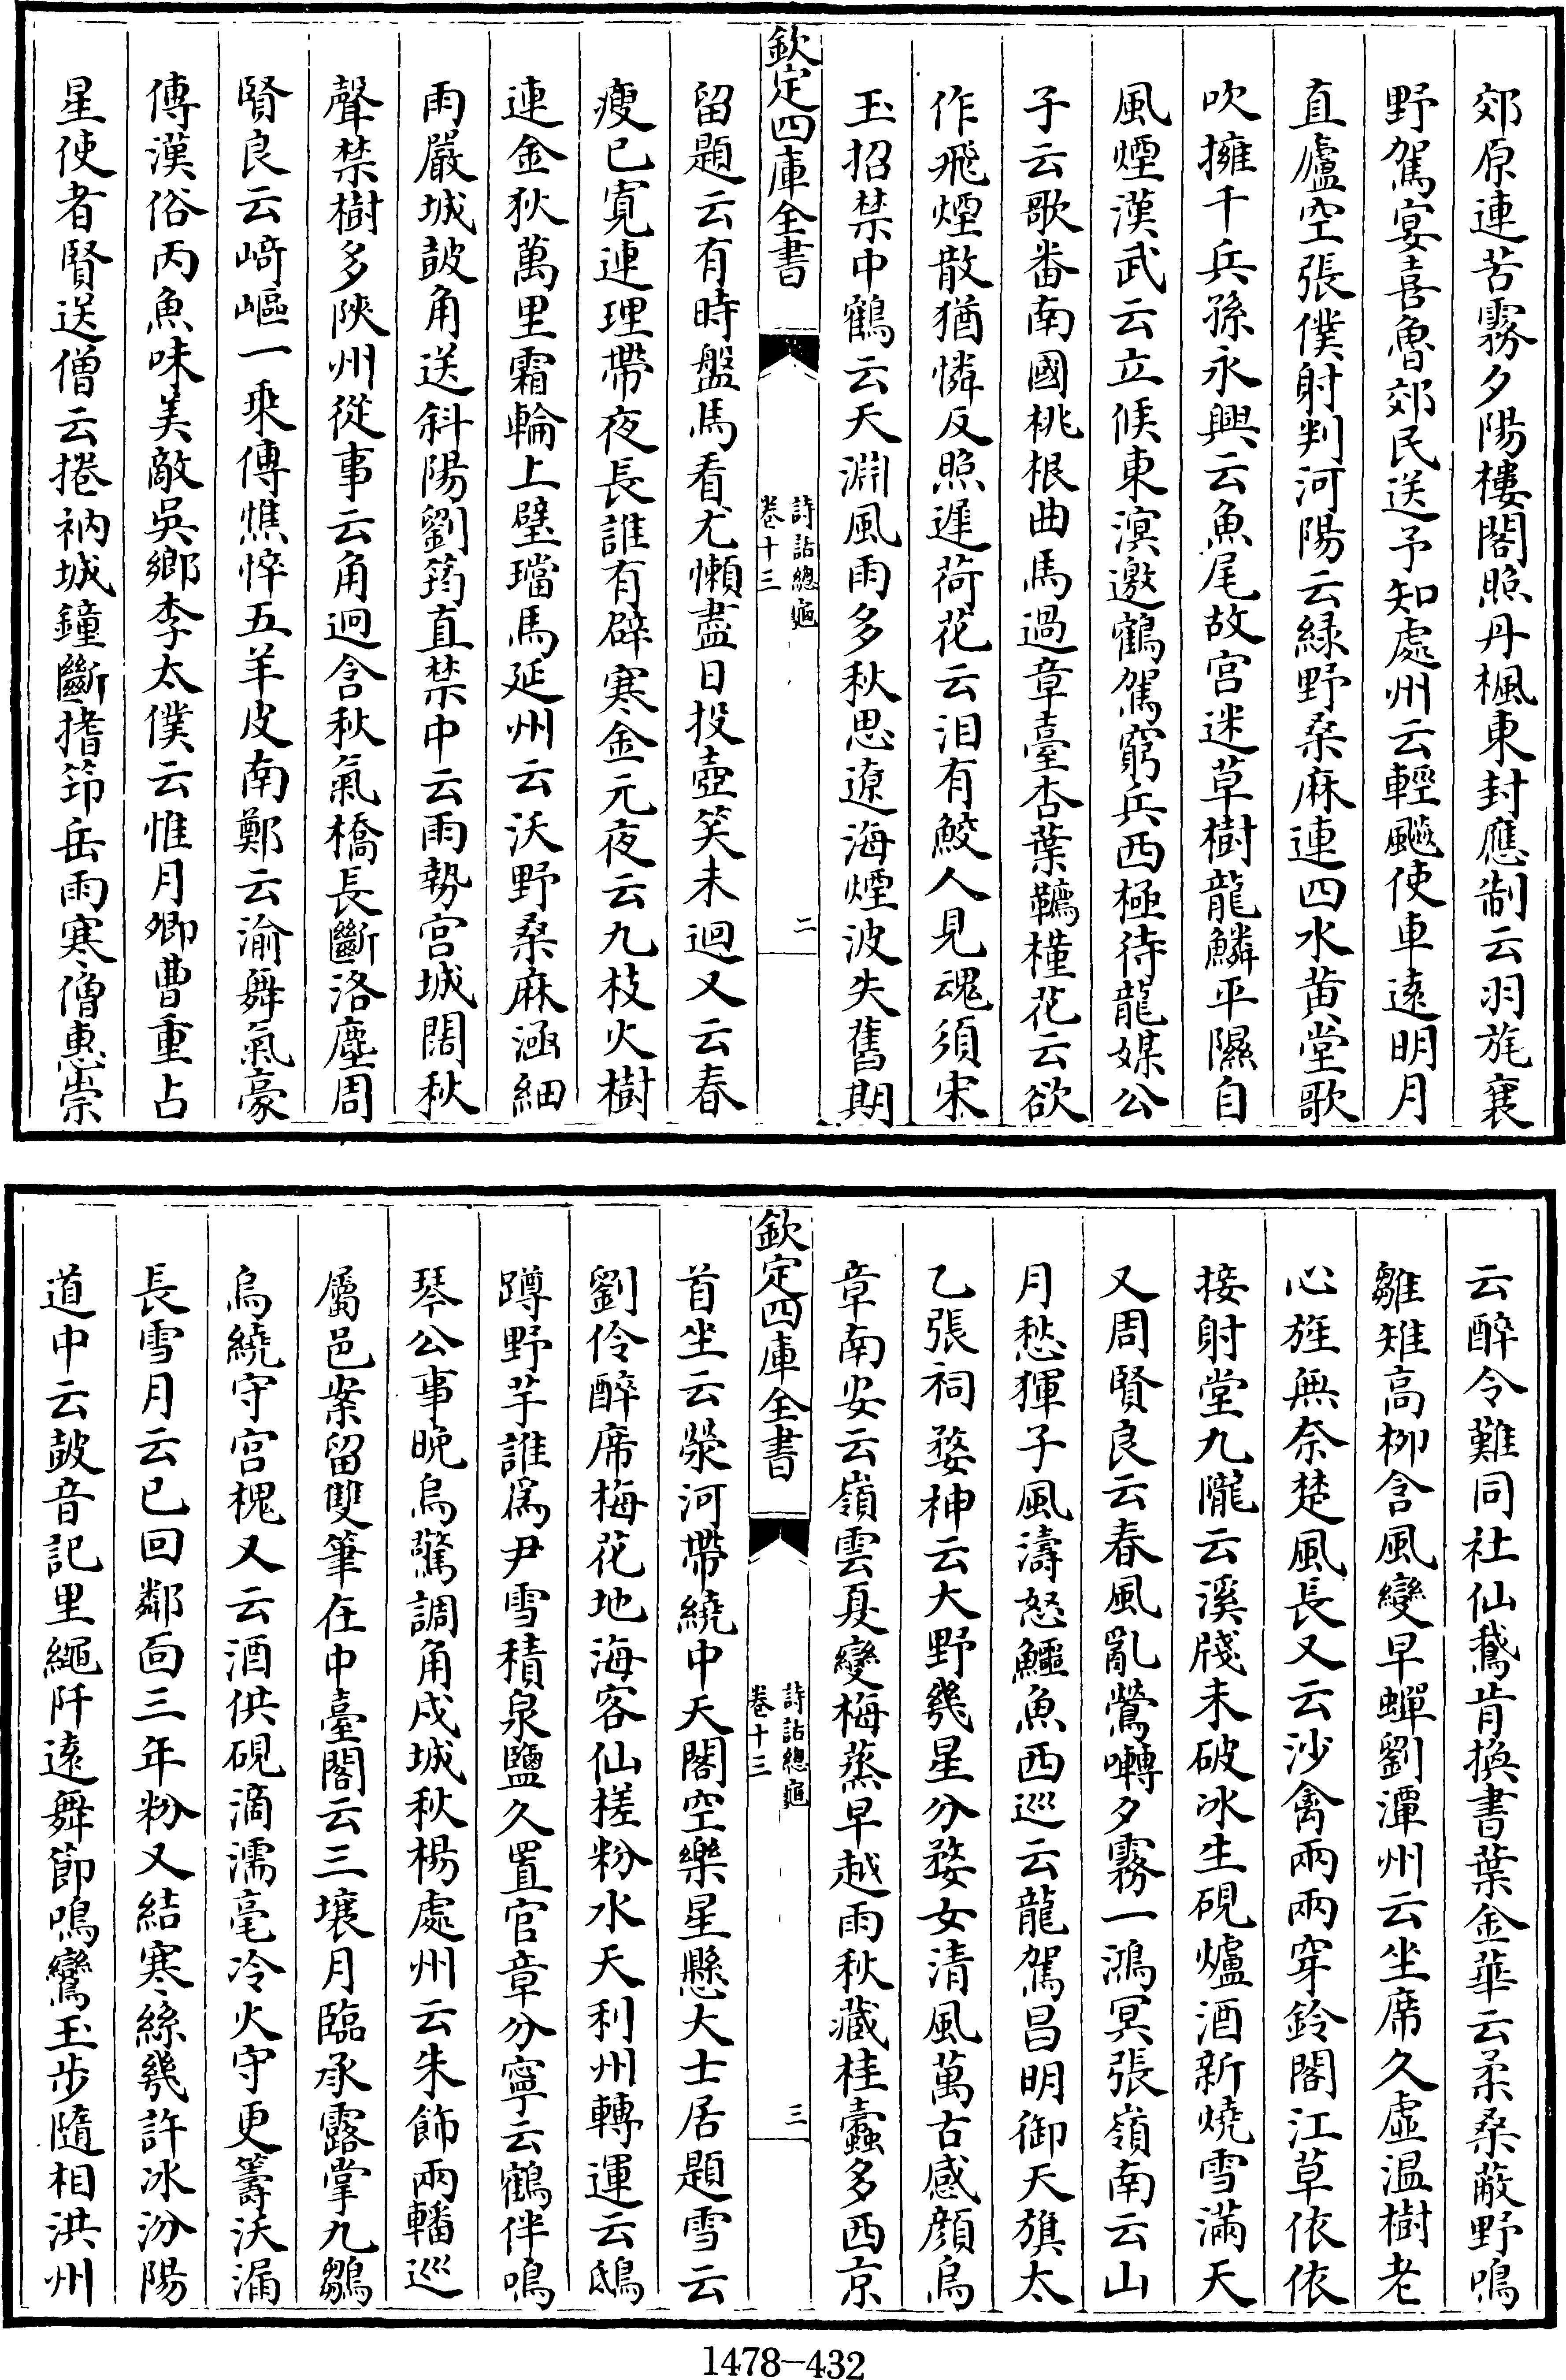 郊原連苦霧夕陽樓閣照丹楓東封應制云羽旄襄
野駕宴喜魯郊民送予知處州云輕飈使車遠明月
直廬空張僕射判河陽云緑野桑麻連四水黄堂歌
吹擁千兵孫永興云魚尾故宫迷草樹龍鱗平隰自
風煙漢武云立候東溟邀鶴駕窮兵西極待龍媒公
子云歌番南國桃根曲馬過章臺杏葉韉槿花云欲
作飛煙散猶憐反照遲荷花云泪有鮫人見魂須宋
玉招禁中鶴云天淵風雨多秋思遼海煙波失舊期
欽定四庫全書
詩話總龜
卷十三
二
留題云有時盤馬看尤懶盡日投壺笑未迴又云春
瘦已寛連理帶夜長誰有辟寒金元夜云九枝火樹
連金狄萬里霜輪上璧璫馬延州云沃野桑麻涵細
雨嚴城鼓角送斜陽劉筠直禁中云雨勢宫城闊秋
聲禁樹多陜州從事云角迥含秋氣橋長斷洛塵周
賢良云﨑嶇一乘傳憔悴五羊皮南鄭云渝舞氣豪
傳漢俗丙魚味美敵吳鄉李太僕云惟月卿曹重占
星使者賢送僧云捲衲城鐘斷揩笻岳雨寒僧惠崇
云醉令難同社仙鵞肯換書葉金華云柔桑蔽野鳴
雛雉高栁含風變早蟬劉潭州云坐席久虛温樹老
心旌無奈楚風長又云沙禽兩兩穿鈴閣江草依依
接射堂九隴云溪牋未破冰生硯爐酒新燒雪滿天
又周賢良云春風亂鶯囀夕霧一鴻冥張嶺南云山
月愁猩子風濤怒鱷魚西巡云龍駕昌明御天旗太
乙張祠婺神云大野幾星分婺女清風萬古感顔烏
章南安云嶺雲夏變梅蒸早越雨秋藏桂蠹多西京
欽定四庫全書
詩話總龜
卷十三
三
首坐云滎河帶繞中天閣空樂星懸大士居題雪云
劉伶醉席梅花地海客仙槎粉水天利州轉運云鴟
蹲野芋誰爲尹雪積泉鹽久置官章分寧云鶴伴鳴
琴公事晚烏驚調角戍城秋楊處州云朱飾兩轓巡
屬邑案留雙筆在中臺閣云三壤月臨承露掌九鶵
烏繞守宫槐又云酒供硯滴濡毫冷火守更籌沃漏
長雪月云已回鄰面三年粉又結寒絲幾許冰汾陽
道中云鼓音記里繩阡遠舞節鳴鸞玉步隨相洪州
1478-432